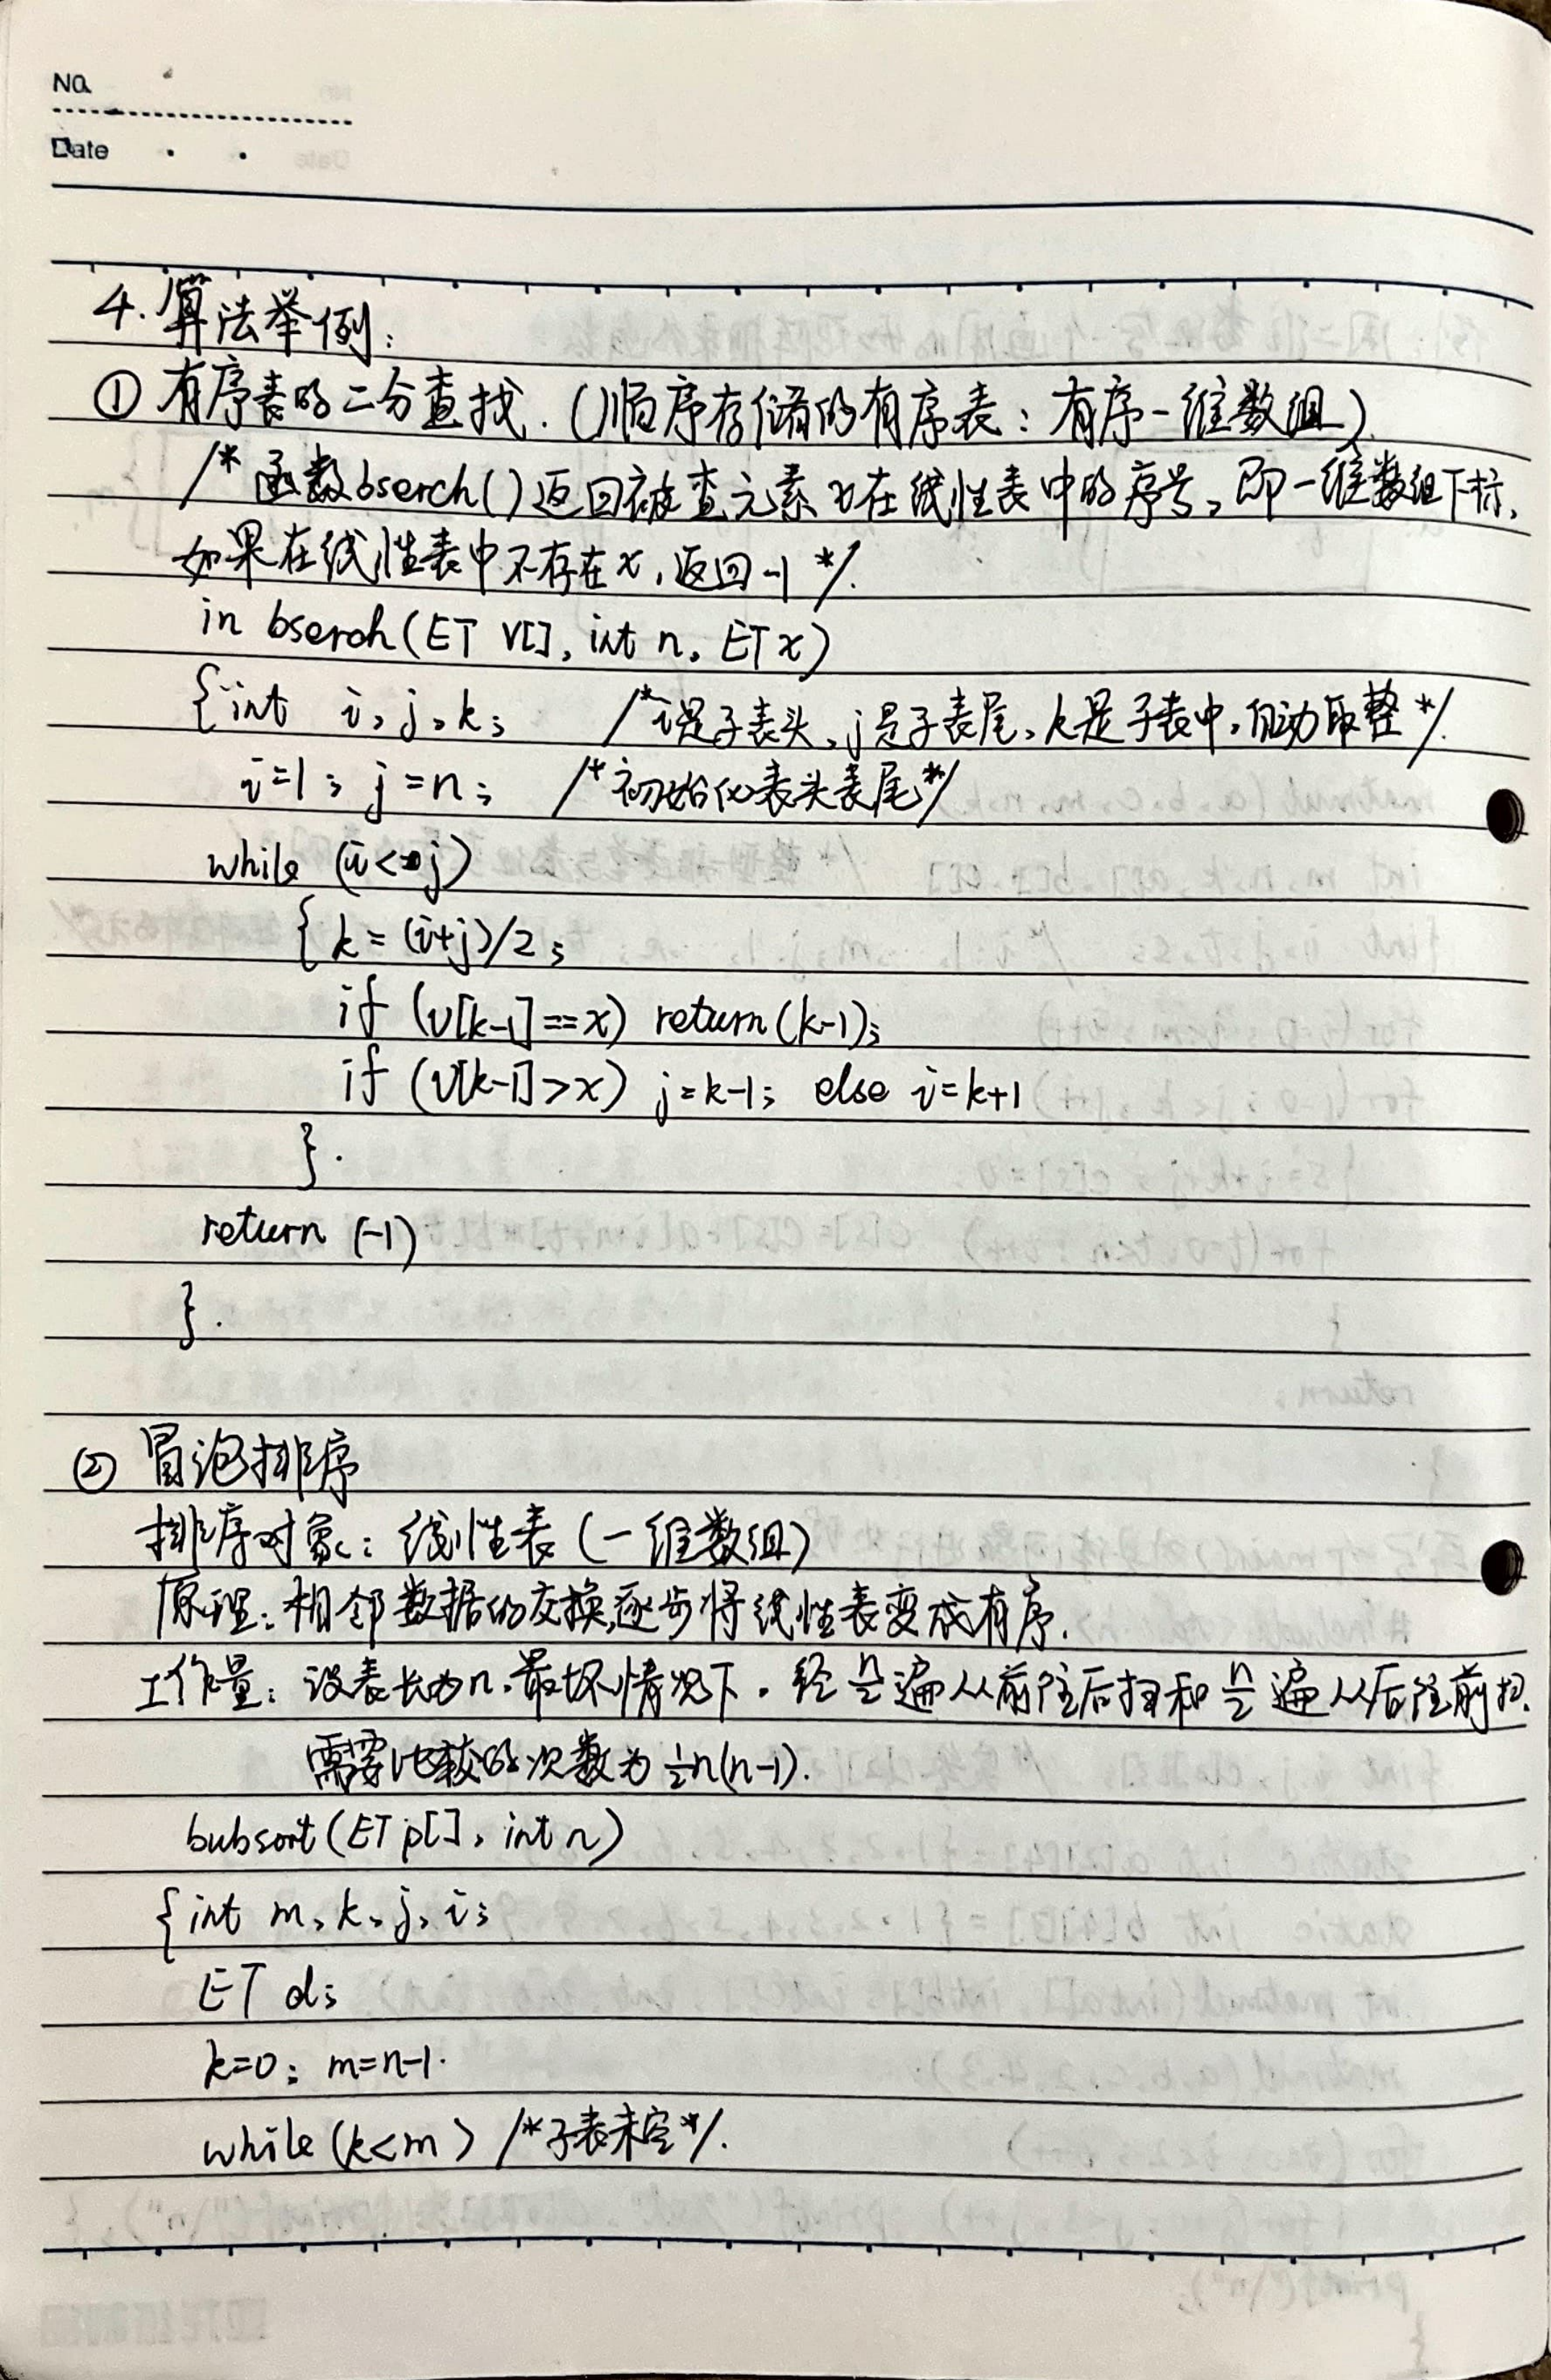 No.
Date
4. 算法举例:
① 有序表的二分查找. (顺序存储的有序表: 有序一维数组)
/* 函数bserch()返回被查元素x在线性表中的序号, 即一维数组下标,
如果在线性表中不存在x, 返回-1 */.
in bserch(ET V[], int n, ET x)
{int i, j, k; /*i是子表头, j是子表尾, k是子表中, 自动取整*/.
i=1; j=n; /*初始化表头表尾*/
while (i<=j)
{ k=(i+j)/2;
if (v[k-1]==x) return(k-1);
if (v[k-1]>x) j=k-1; else i=k+1
}.
return (-1)
}.
② 冒泡排序
排序对象: 线性表 (一维数组)
原理: 相邻数据的交换,逐步将线性表变成有序.
工作量: 设表长为n, 最坏情况下, 经 n/2 遍从前往后扫和 n/2 遍从后往前扫.
需要比较的次数为½n(n-1).
bubsort(ET p[], int n)
{int m, k, j, i;
ET d;
k=0; m=n-1.
while(k<m) /*子表未空*/.